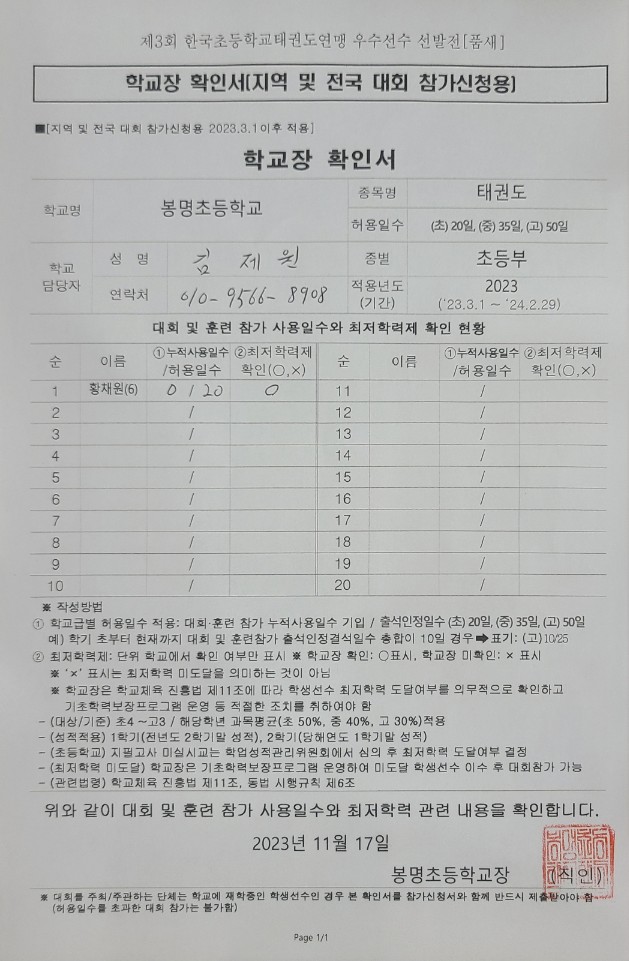 제3회 한국초등학교태권도연맹 우수선수 선발전[품새]
학교장 확인서(지역 및 전국 대회 참가신청용)
■[지역 및 전국 대회 참가신청용 2023.3.1이후 적용]
학교장 확인서
학교명 봉명초등학교 종목명 태권도
허용일수 (초) 20일, (중) 35일, (고) 50일
학교 담당자 성 명 김 제 원 종별 초등부
연락처 010-9566-8908 적용년도 (기간) 2023 ('23.3.1 ~ '24.2.29)
대회 및 훈련 참가 사용일수와 최저학력제 확인 현황
순 이름 ①누적사용일수 /허용일수 ②최저학력제 확인(○,×) 순 이름 ①누적사용일수 /허용일수 ②최저학력제 확인(○,×)
1 황채원(6) 0 / 20 ○ 11 /
2 / 12 /
3 / 13 /
4 / 14 /
5 / 15 /
6 / 16 /
7 / 17 /
8 / 18 /
9 / 19 /
10 / 20 /
※ 작성방법
① 학교급별 허용일수 적용: 대회·훈련 참가 누적사용일수 기입 / 출석인정일수 (초) 20일, (중) 35일, (고) 50일
예) 학기 초부터 현재까지 대회 및 훈련참가 출석인정결석일수 총합이 10일 경우 ➡표기: (고)10/25
② 최저학력제: 단위 학교에서 확인 여부만 표시 ※ 학교장 확인: ○표시, 학교장 미확인: × 표시
※ '×' 표시는 최저학력 미도달을 의미하는 것이 아님
※ 학교장은 학교체육 진흥법 제11조에 따라 학생선수 최저학력 도달여부를 의무적으로 확인하고
기초학력보장프로그램 운영 등 적절한 조치를 취하여야 함
- (대상/기준) 초4 ~고3 / 해당학년 과목평균(초 50%, 중 40%, 고 30%)적용
- (성적적용) 1학기(전년도 2학기말 성적), 2학기(당해연도 1학기말 성적)
- (초등학교) 지필고사 미실시교는 학업성적관리위원회에서 심의 후 최저학력 도달여부 결정
- (최저학력 미도달) 학교장은 기초학력보장프로그램 운영하여 미도달 학생선수 이수 후 대회참가 가능
- (관련법령) 학교체육 진흥법 제11조, 동법 시행규칙 제6조
위와 같이 대회 및 훈련 참가 사용일수와 최저학력 관련 내용을 확인합니다.
2023년 11월 17일
봉명초등학교장 (직인)
※ 대회를 주최/주관하는 단체는 학교에 재학중인 학생선수인 경우 본 확인서를 참가신청서와 함께 반드시 제출받아야 함
(허용일수를 초과한 대회 참가는 불가함)
Page 1/1